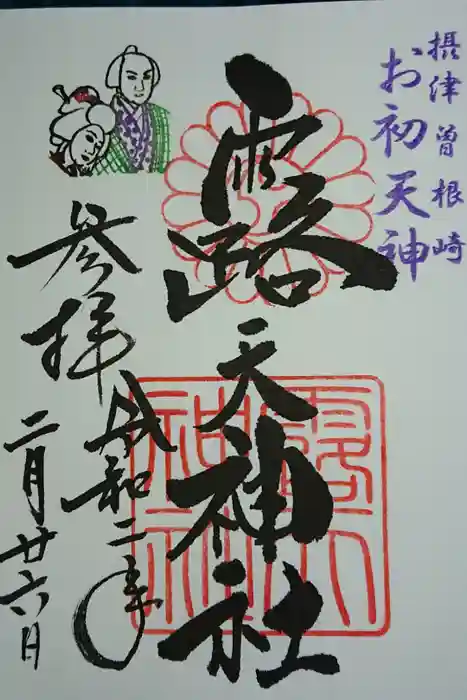 摂津曽根崎
お初天神
露天神社
参拝
令和二年
二月廿六日
露天
神社